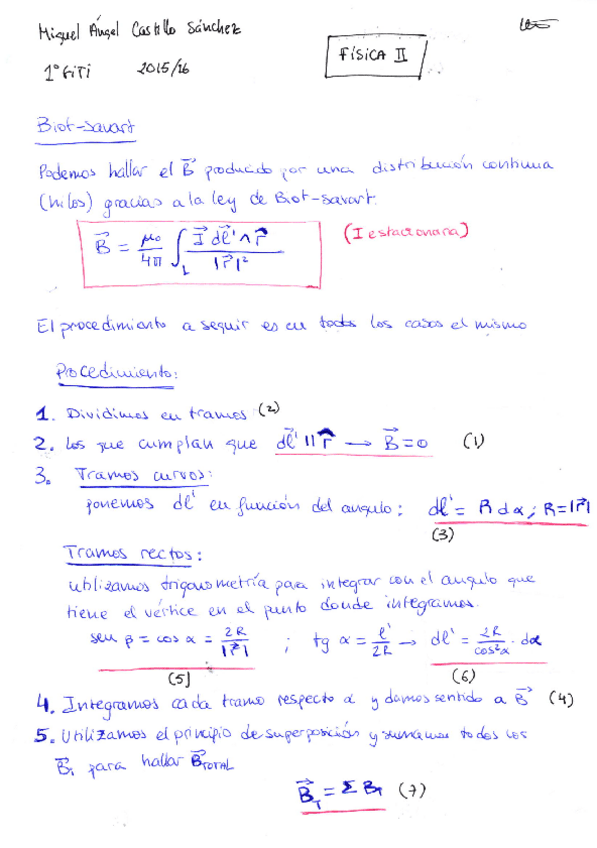 Miguel Ángel Castillo Sánchez
FÍSICA II
1º GITI 2015/16
Biot-Savart
Podemos hallar el B⃗ producido por una distribución continua
(hilos) gracias a la ley de Biot-Savart:
B⃗ = μ₀/4π ∫_L I⃗ dl⃗' ∧ r̂ / |r⃗|² (I estacionaria)
El procedimiento a seguir es en todos los casos el mismo
Procedimiento:
1. Dividimos en tramos (2)
2. Los que cumplan que dl⃗' || r̂ → B⃗ = 0 (1)
3. Tramos curvos:
ponemos dl' en función del angulo; dl' = R dα ; R = |r⃗|
(3)
Tramos rectos:
utilizamos trigonometría para integrar con el angulo que
tiene el vértice en el punto donde integramos.
sen β = cos α = 2R/|r⃗| ; tg α = l'/2R → dl' = 2R/cos²α · dα
(5) (6)
4. Integramos cada tramo respecto α y damos sentido a B⃗ (4)
5. Utilizamos el principio de superposición y sumamos todos los
B⃗ᵢ para hallar B⃗TOTAL
B⃗_T = Σ Bᵢ (7)